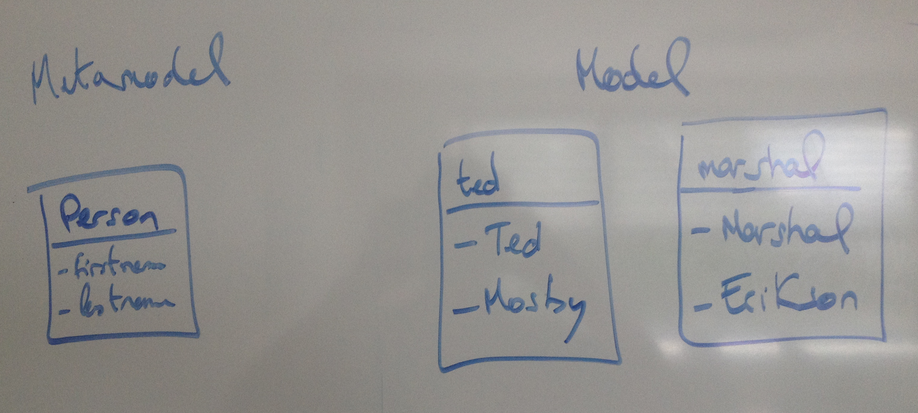 Metamodel
Person
- firstname
- lastname
Model
ted
- Ted
- Mosby
marshal
- Marshal
- Erikson